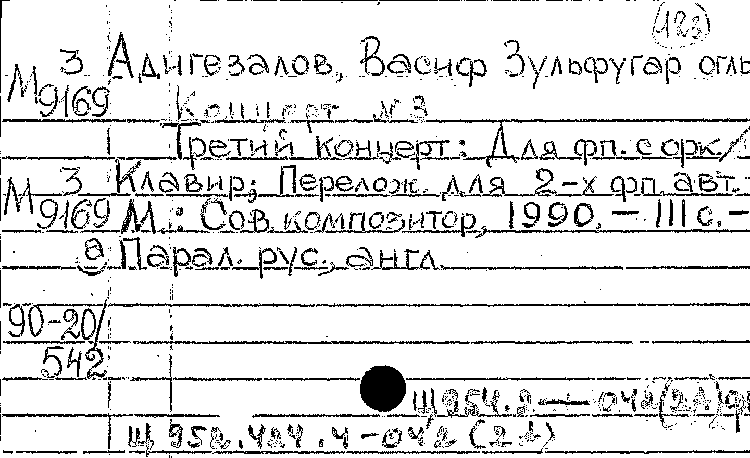 (123)
М 3/9169 Адигезалов, Васиф Зульфугар оглы
Концерт N 3
Третий концерт: Для фп. с орк/
М 3/9169 Клавир; Перелож. для 2-х фп. авт.-
М.: Сов. композитор, 1990. – 111 с. –
а Парал. рус., англ.
90-20/
542
Щ 954.2 — 042(21)
Щ 952.424.4-042 (21)